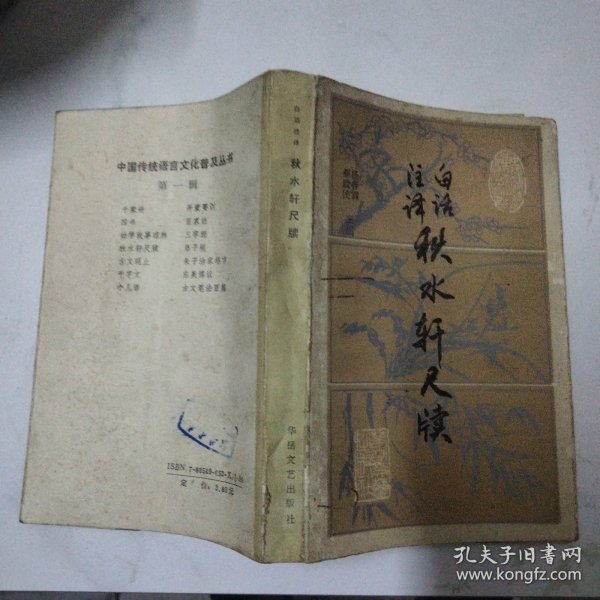 中国传统语言文化普及丛书
第一辑
千家诗
四书
百家姓
幼学故事琼林
三字经
秋水轩尺牍
弟子规
古文观止
朱子治家格言
千字文
东莱博议
小儿语
古文笔法百篇
定 价：3.60元
秋水轩尺牍
华岳文艺出版社
白话
注译
秋水轩尺牍
孔夫子旧书网
www.kongfz.com